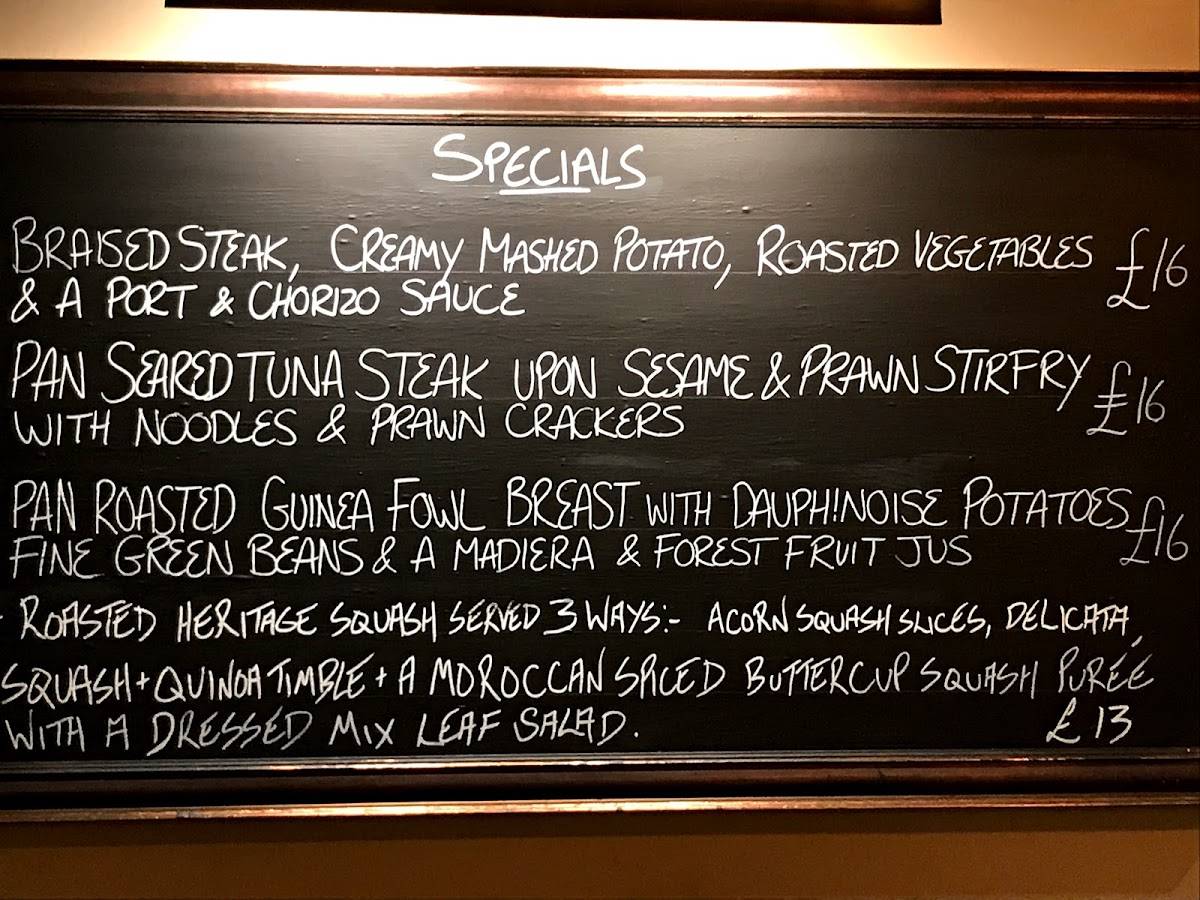 SPECIALS
BRAISED STEAK, CREAMY MASHED POTATO, ROASTED VEGETABLES £16
& A PORT & CHORIZO SAUCE
PAN SEARED TUNA STEAK UPON SESAME & PRAWN STIRFRY £16
WITH NOODLES & PRAWN CRACKERS
PAN ROASTED GUINEA FOWL BREAST WITH DAUPH!NOISE POTATOES £16
FINE GREEN BEANS & A MADIERA & FOREST FRUIT JUS
- ROASTED HERITAGE SQUASH SERVED 3 WAYS:- ACORN SQUASH SLICES, DELICATA,
SQUASH + QUINOA TIMBLE + A MOROCCAN SPICED BUTTERCUP SQUASH PURÉE
WITH A DRESSED MIX LEAF SALAD. £13